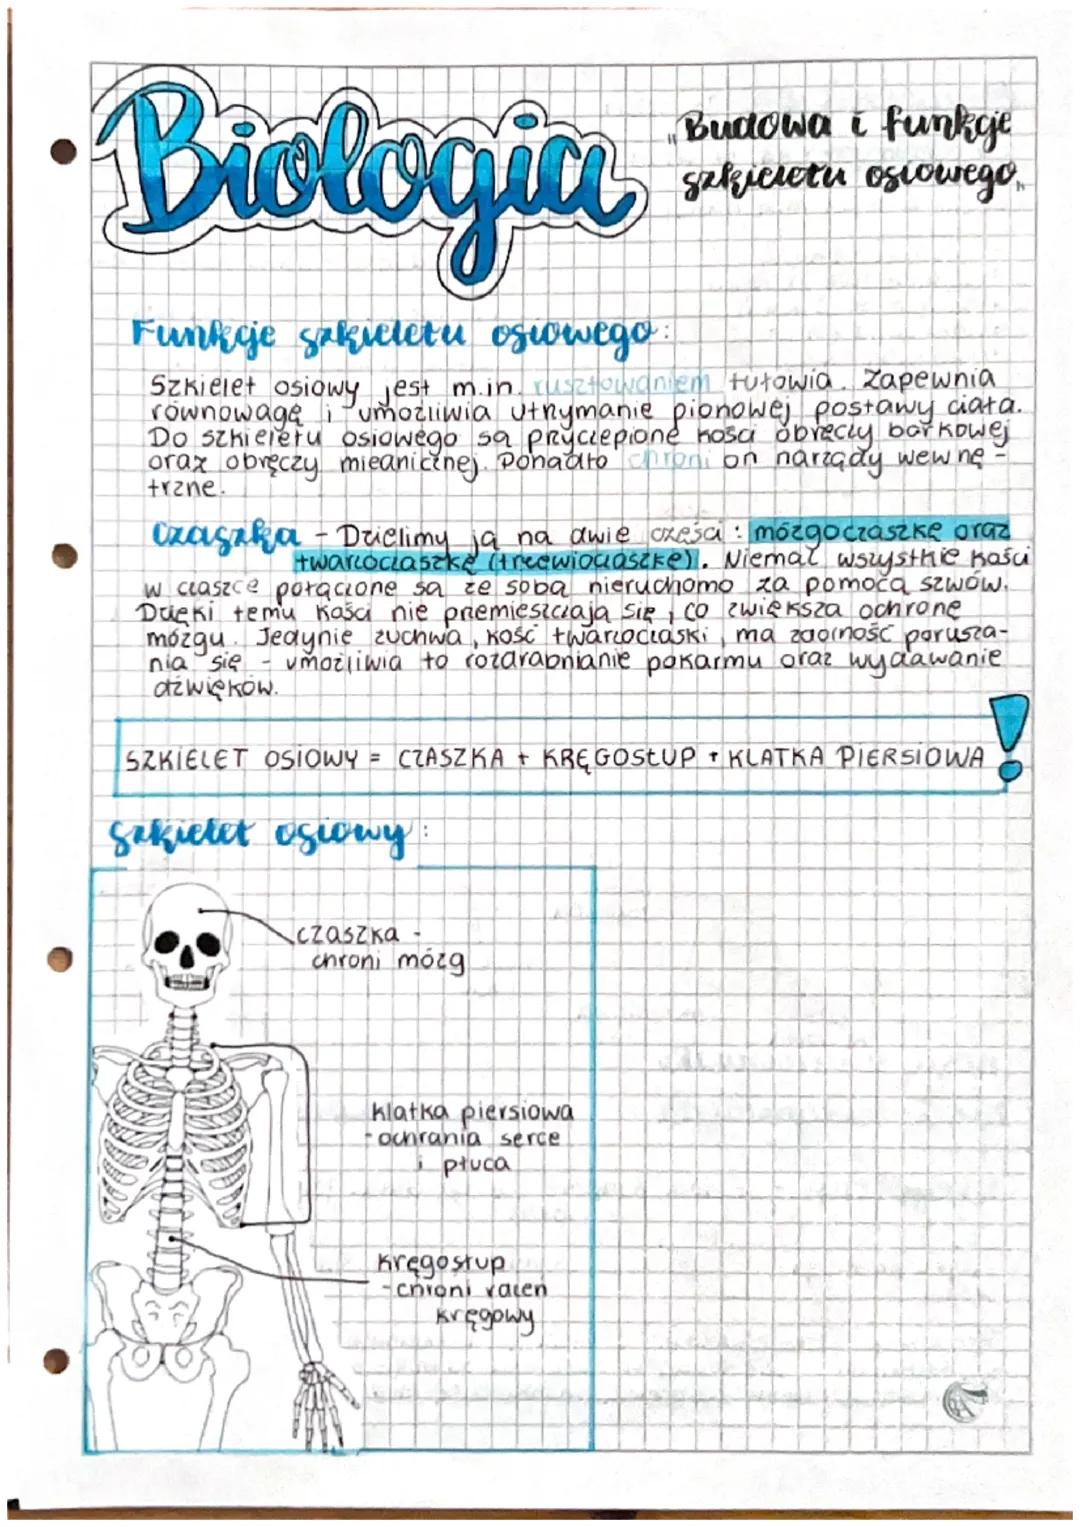 Biologia
„Budowa i funkcje
szkieletu osiowego"
Funkcje szkieletu osiowego:
Szkielet osiowy jest m.in. rusztowaniem tułowia. Zapewnia
równowagę i umożliwia utrzymanie pionowej postawy ciała.
Do szkieletu osiowego są przyczepione kości obręczy barkowej
oraz obręczy miednicznej. Ponadto chroni on narządy wewnę-
trzne.
Czaszka - Dzielimy ją na dwie części: mózgoczaszkę oraz
twarzoczaszkę (trzewioczaszkę). Niemal wszystkie kości
w czaszce połączone są ze sobą nieruchomo za pomocą szwów.
Dzięki temu kości nie przemieszczają się, co zwiększa ochronę
mózgu. Jedynie żuchwa, kość twarzoczaski, ma zdolność porusza-
nia się - umożliwia to rozdrabnianie pokarmu oraz wydawanie
dźwięków.
SZKIELET OSIOWY = CZASZKA + KRĘGOSŁUP + KLATKA PIERSIOWA!
Szkielet osiowy:
czaszka -
chroni mózg
Klatka piersiowa
- ochrania serce
i płuca
Kręgosłup
- chroni rdzeń
kręgowy